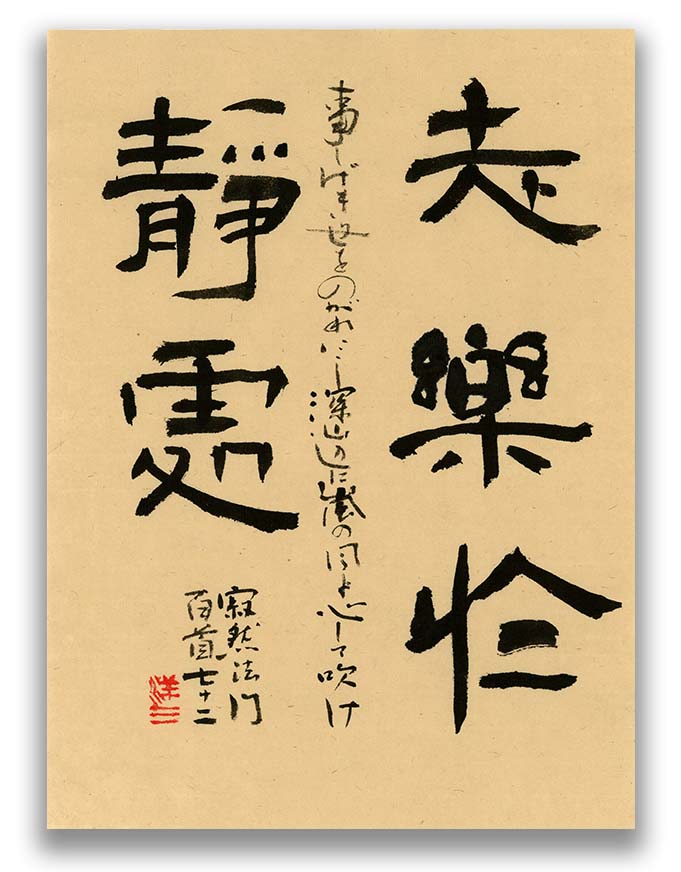 志樂於
事しげき世をのがれにし深山辺に嵐の風も心して吹け
靜處
寂然法門
百首七十二